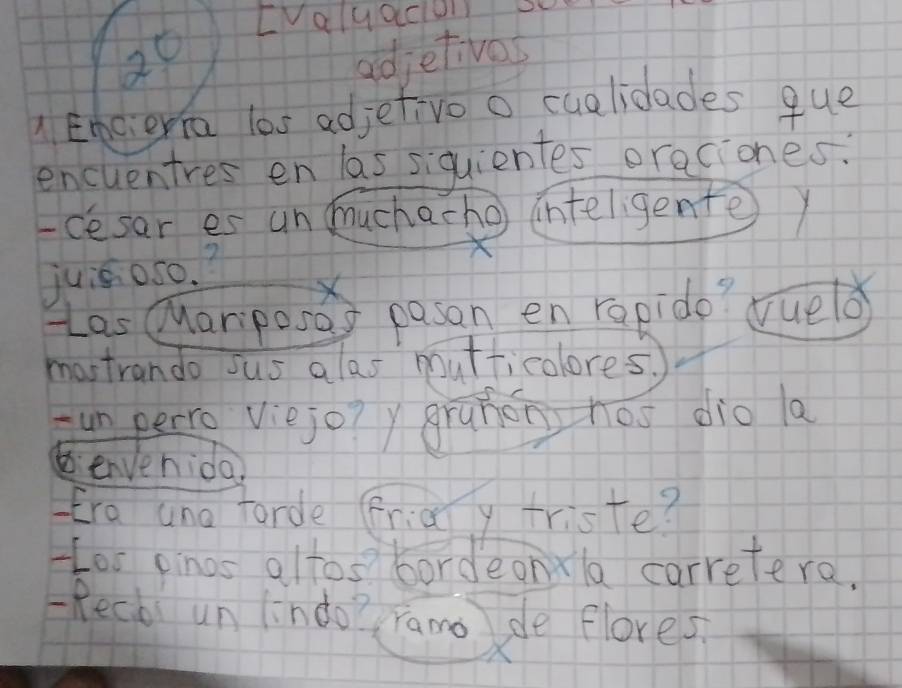 Evaluación
2º
adjetivos
1 Encierra los adjetivo o cualidades que
encuentres en las siguientes oraciones:
- césar es un muchacho inteligente y
juicioso.?
- Las Mariposas pasan en rapido? vuelo
mostrando sus alas multicolores.
- un perro viejo? y gruñon, nos dio la
bienvenida.
- Era una tarde fria y triste?
- Los pinos altos? bordean la carretera.
- Recibi un lindo? ramo de flores.